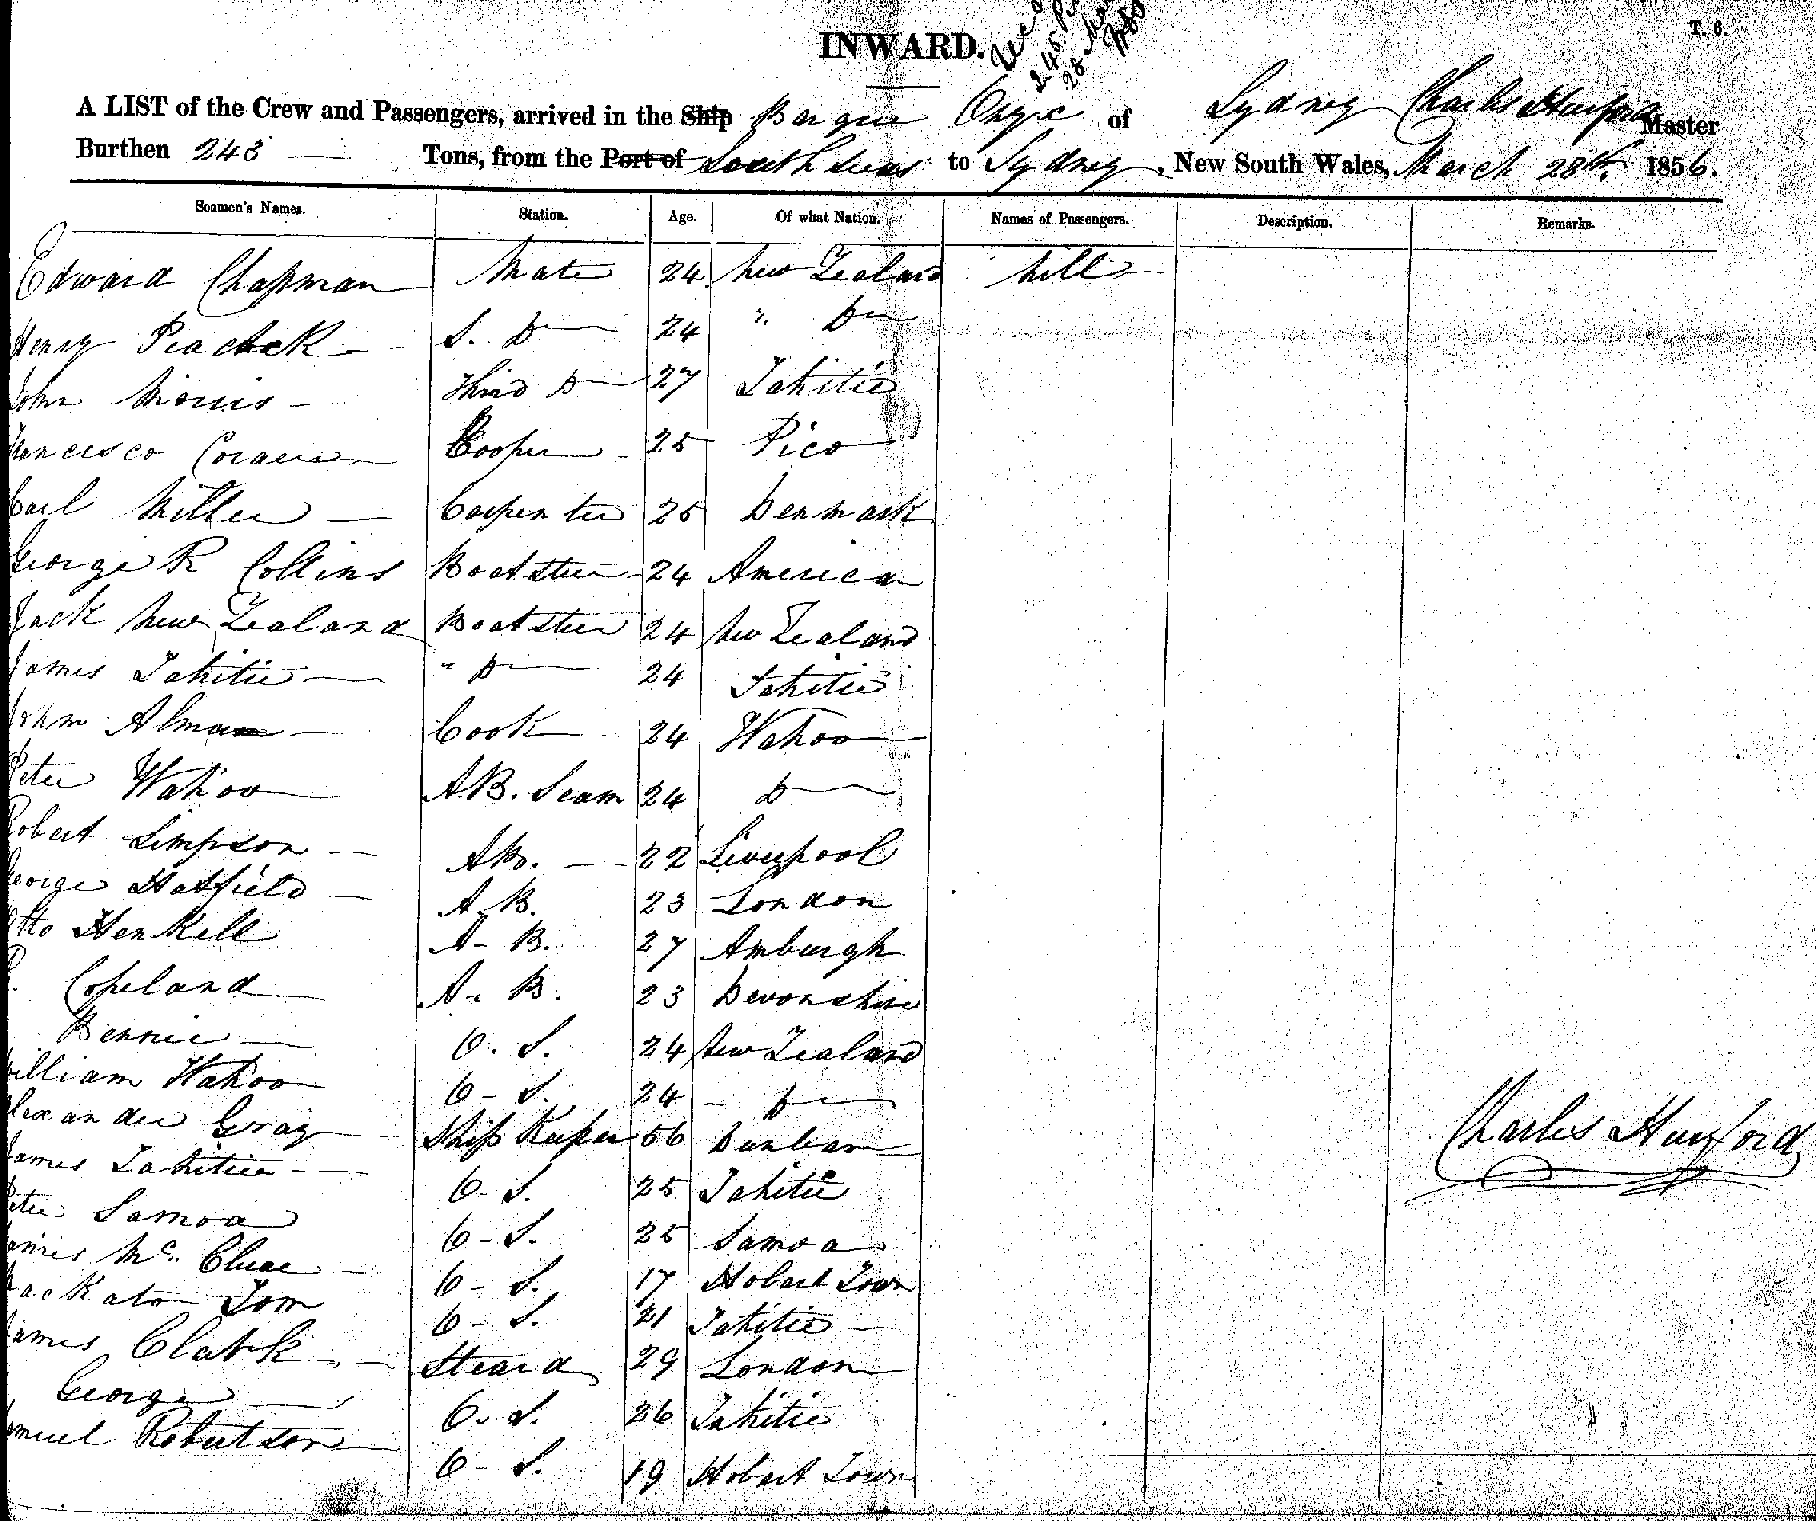 INWARD.
T. 6.
A LIST of the Crew and Passengers, arrived in the Ship Barque of Sydney Charles Hurford Master
Burthen 243 Tons, from the Port of South Seas to Sydney, New South Wales, March 28th. 1856.
Seamen's Names. Station. Age. Of what Nation. Names of Passengers. Description. Remarks.
Edward Chapman Mate 24 New Zealand Nill
Henry Peacock S. Do 24 " Do
John Morris Third Do 27 Tahitie
Francesco Cooper 25 Pico
Carl Miller Carpenter 25 Denmark
George R Collins Boatsteer 24 America
Jack New Zealand Boatsteer 24 New Zealand
James Tahitie " Do 24 Tahitie
John Alman Cook 24 Wahoo
Peter Wahoo AB. Seam 24 Do
Robert Simpson AB. 22 Liverpool
George Hatfield A. B. 23 London
Otto Henkell A- B. 27 Amburgh
Copeland A. B. 23 Devonshire
Bennie O. S. 24 New Zealand
William Wahoo O- S. 24 Do
Alexander Gray Ship Keeper 56 Dunbar
James Tahitie O. S. 25 Tahitie
Peter Samoa O- S. 25 Samoa
James Mc. Clure O- S. 17 Hobart Town
Jackato Tom O- S. 21 Tahitie
James Clark Steard 29 London
George O. S. 26 Tahitie
Samuel Robertson O- S. 19 Hobart Town
Charles Hurford